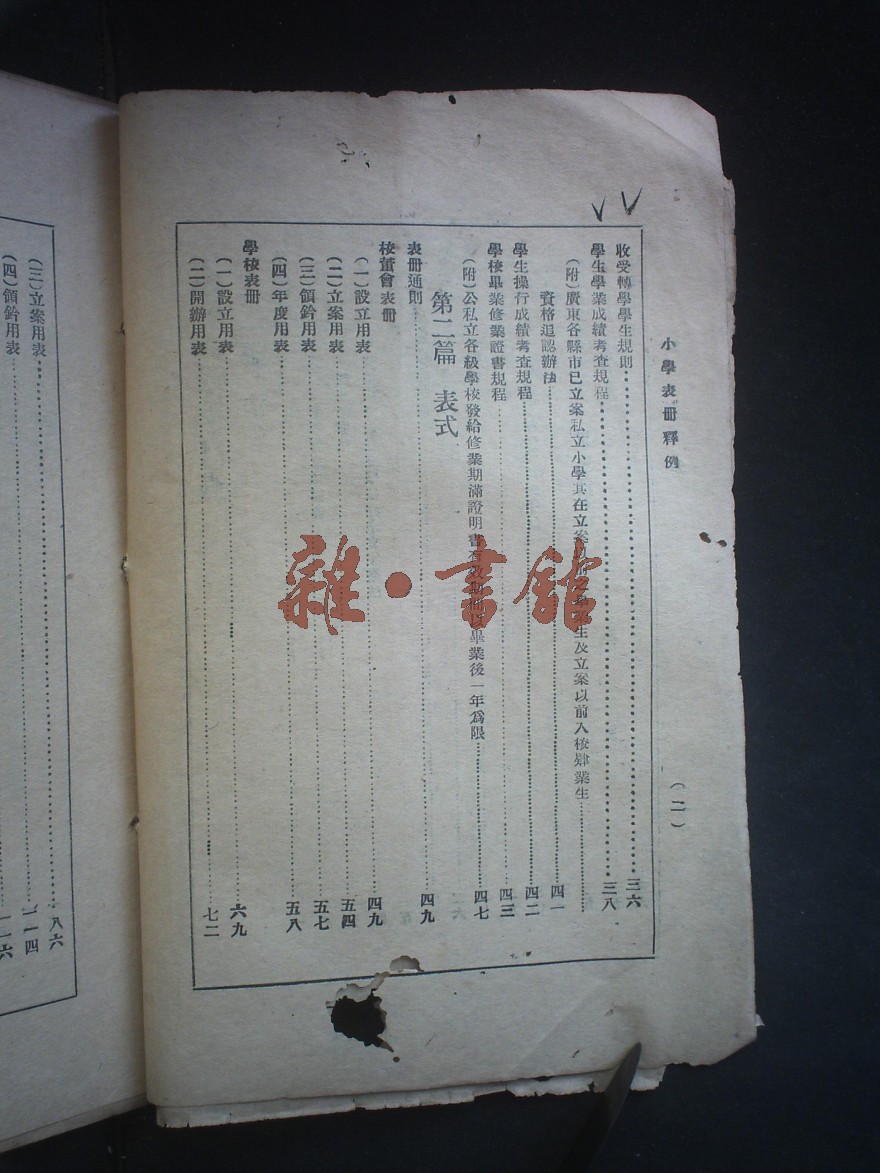 小學表冊釋例
(二)
收受轉學學生規則 三六
學生學業成績考查規程 三八
(附)廣東各縣市已立案私立小學其在立案以前 生及立案以前入校肄業生
資格追認辦法 四一
學生操行成績考查規程 四二
學校畢業修業證書規程 四三
(附)公私立各級學校發給修業期滿證明書 畢業後一年為限 四七
第二篇 表式
表冊通則 四九
校董會表冊
(一)設立用表 四九
(二)立案用表 五四
(三)領鈐用表 五七
(四)年度用表 五八
學校表冊
(一)設立用表 六九
(二)開辦用表 七二
(三)立案用表 八六
(四)領鈐用表 一一四
雜·書館